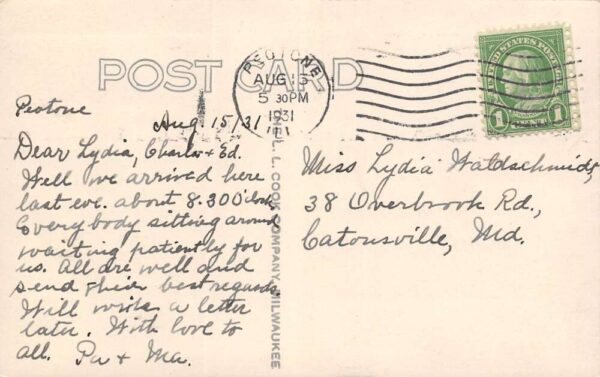 POST CARD
PEOTONE
AUG 15
5 30PM
1931
ILL.
UNITED STATES POSTAGE
1 1
CENT
Peotone
Aug 15/31
Dear Lydia, Charlie + Ed.
Well we arrived here
last eve. about 8.30 O'clock.
Everybody sitting around
waiting patiently for
us. All are well and
send their best regards.
Will write a letter
later. With love to
all. Pa + Ma.
L. L. COOK COMPANY, MILWAUKEE
Miss Lydia Waldschmidt,
38 Overbrook Rd.,
Catonsville, Md.